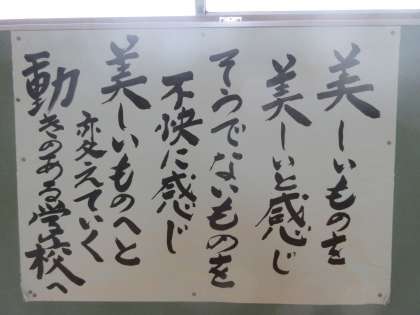 美しいものを
美しいと感じ
そうでないものを
不快に感じ
美しいものへと
変えていく
動きのある学校へ